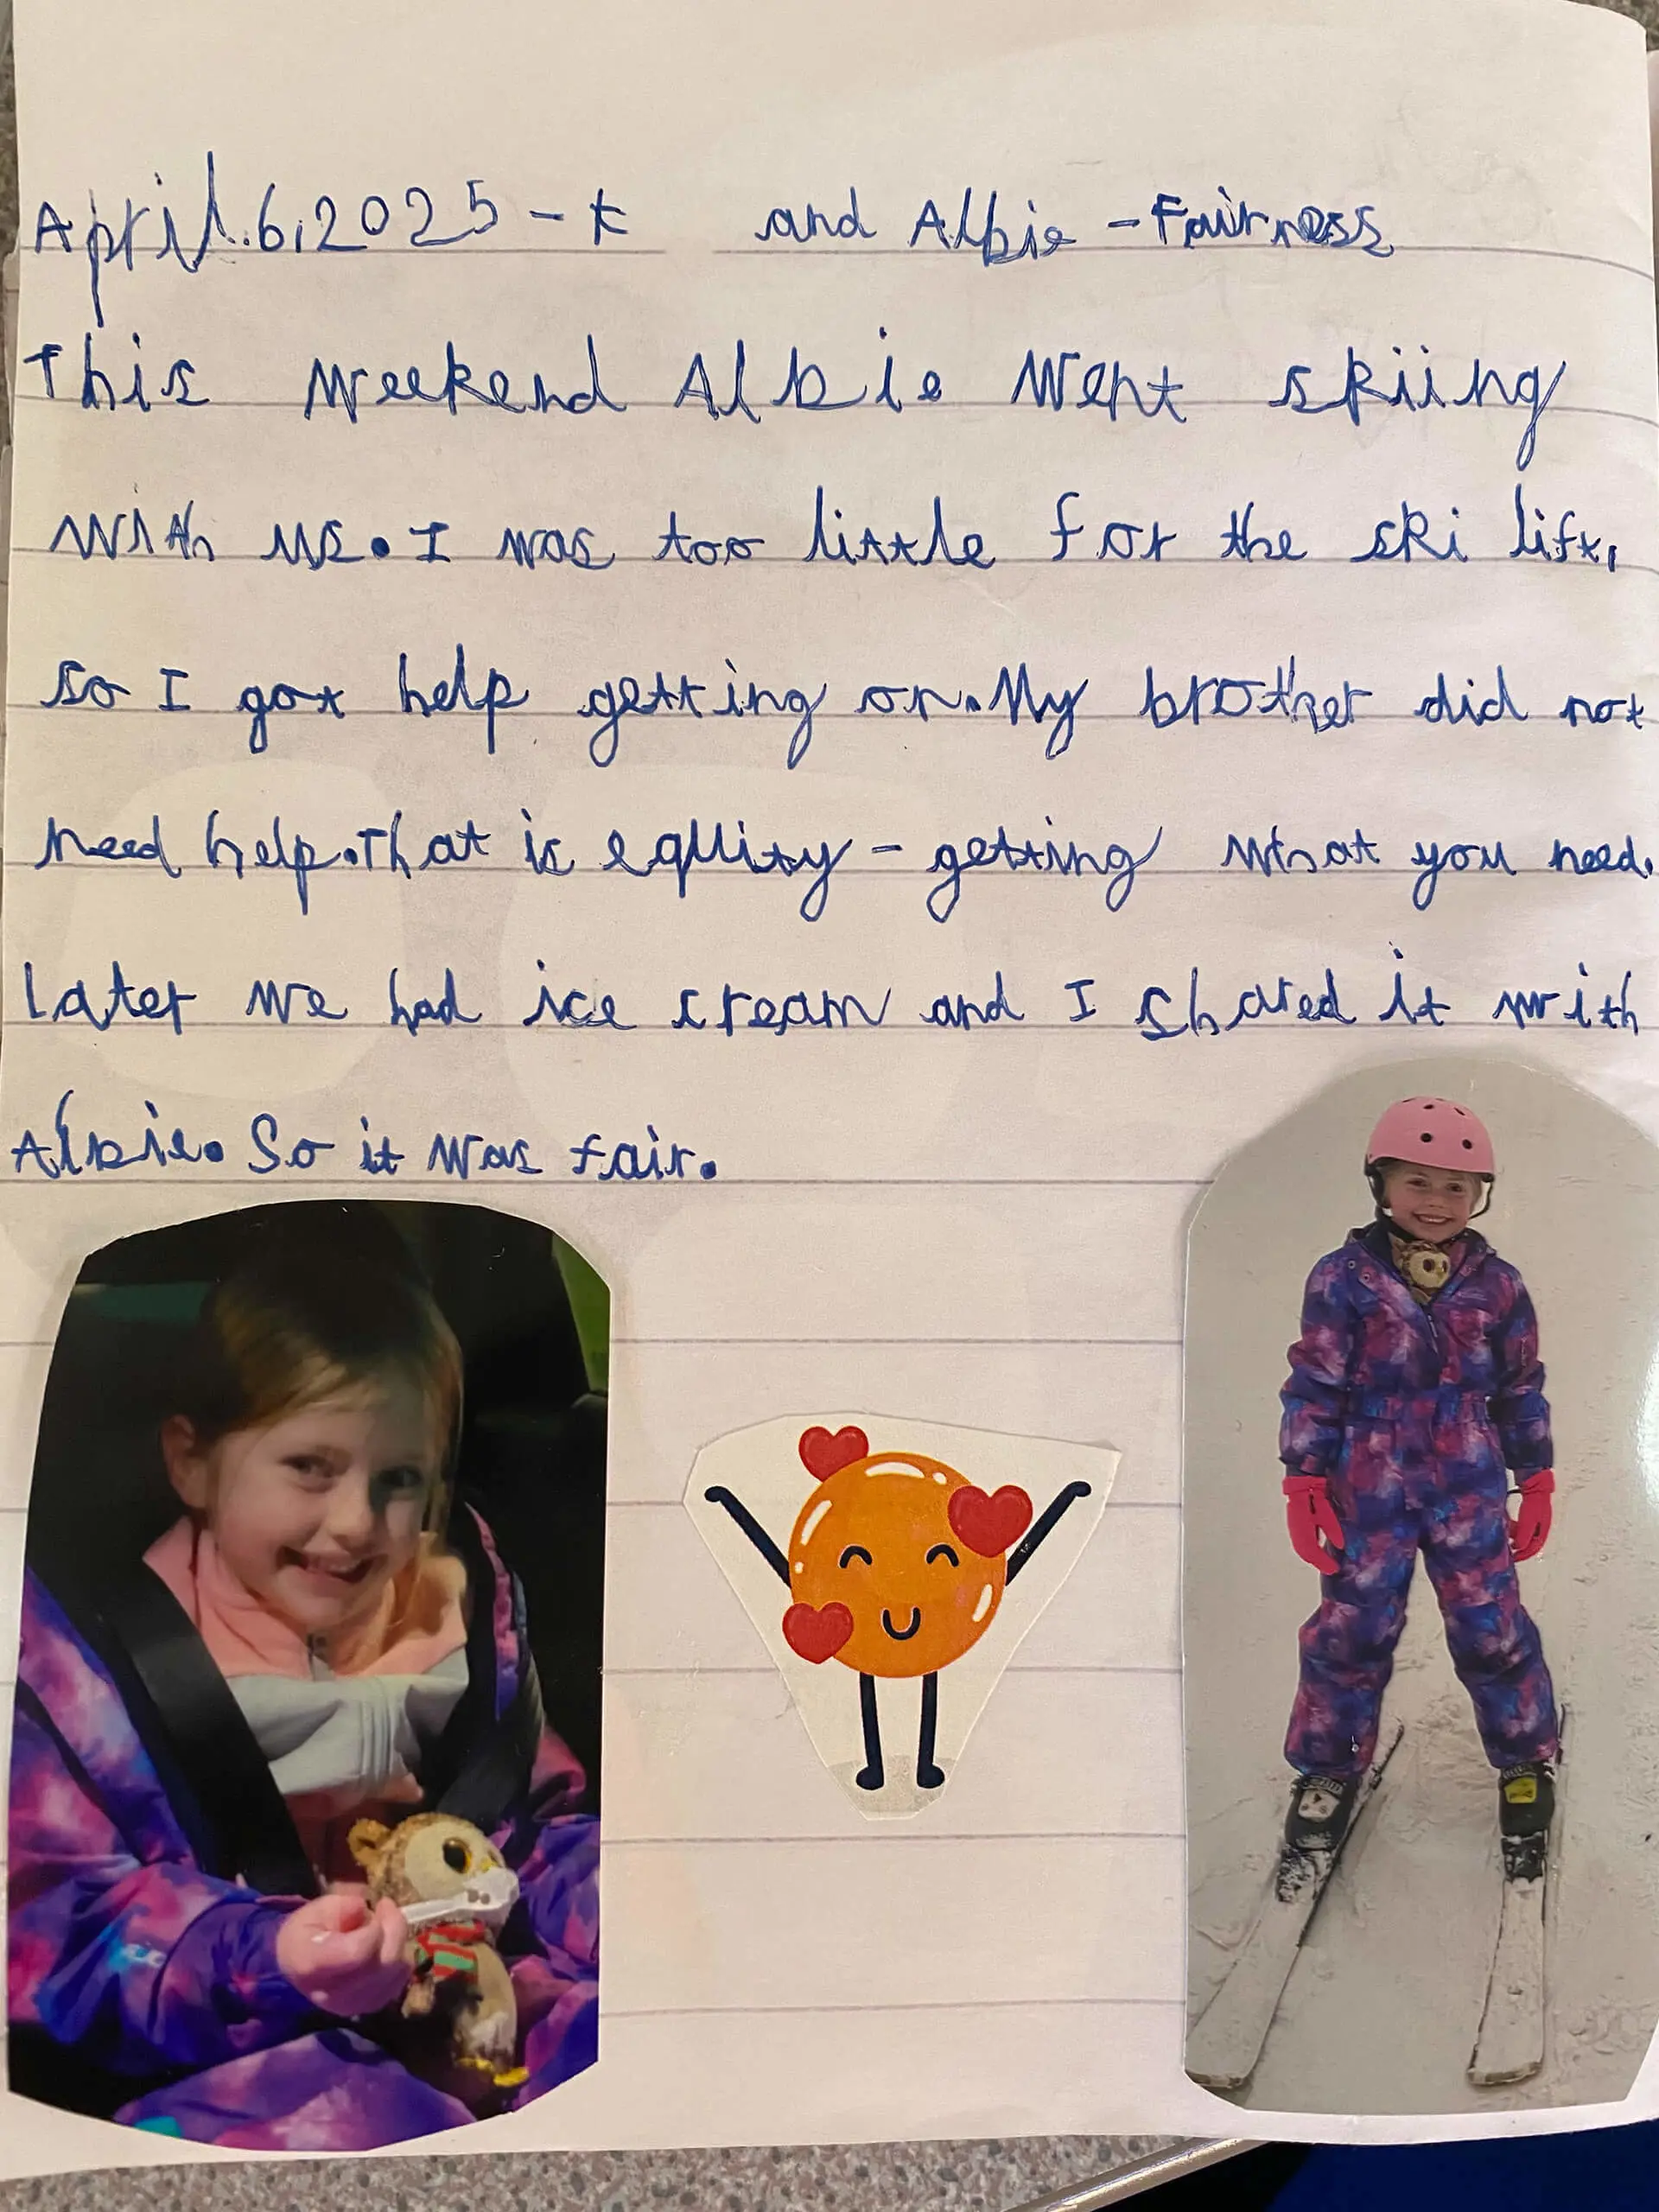 April.6,2025 - K and Albie - Fairness
This weekend Albie went skiing
with us. I was too little for the ski lift,
so I got help getting on. My brother did not
need help. That is equity - getting what you need.
Later we had ice cream and I shared it with
Albie. So it was fair.